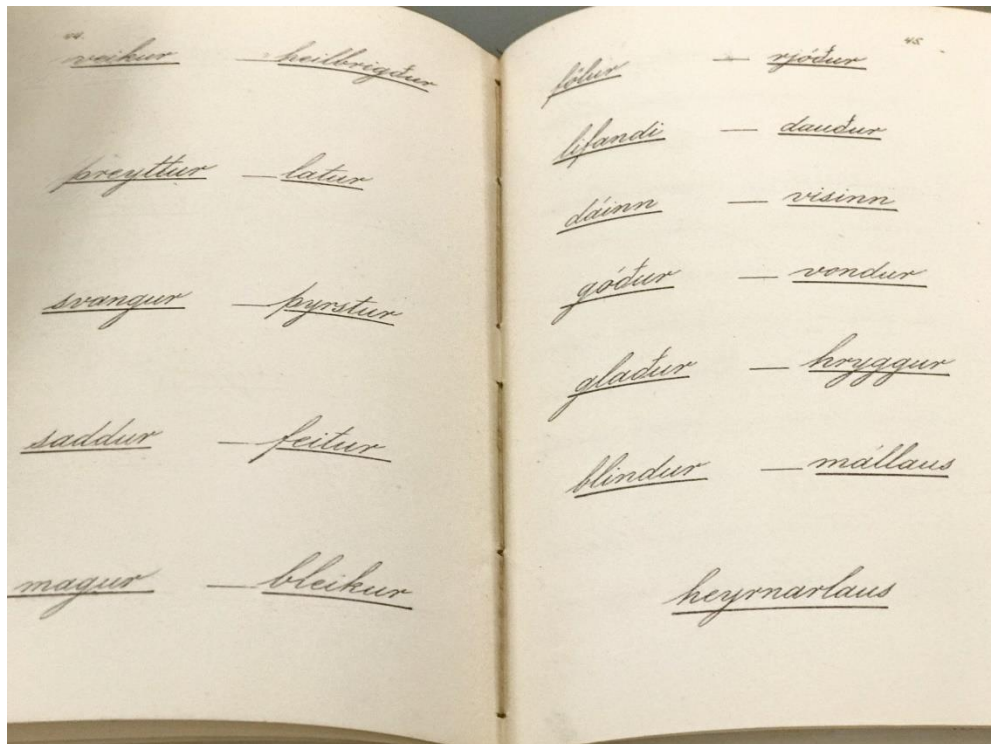 44.
veikur — heilbrigður
þreyttur — latur
svangur — þyrstur
saddur — feitur
magur — bleikur
45.
fölur — rjóður
lifandi — dauður
dáinn — visinn
góður — vondur
glaður — hryggur
blindur — mállaus
heyrnarlaus